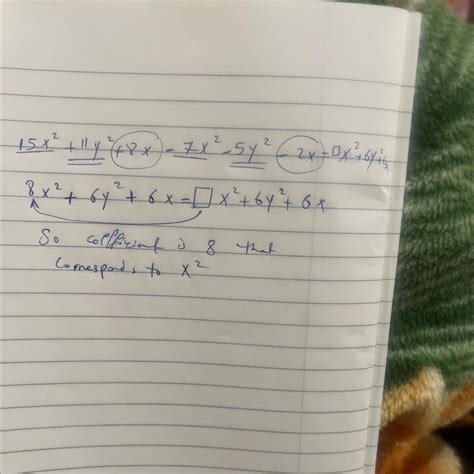 15x² + 11y² + 8x - 7x² - 5y² - 2x = □x² + 6y² + 6x
8x² + 6y² + 6x = □x² + 6y² + 6x
So coefficient is 8 that
corresponds to x²